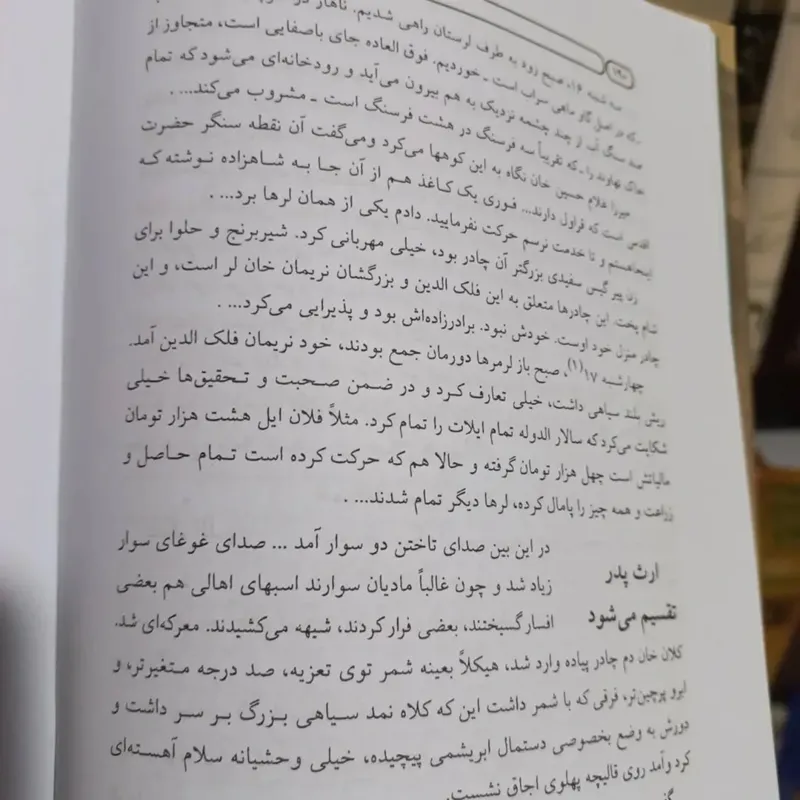 ۱۹۰
سه شنبه ۱۶، صبح زود به طرف لرستان راهی شدیم. ناهار در
ـ که در اصل گاو ماهی سراب است ـ خوردیم. فوق العاده جای باصفایی است، متجاوز از
صد سنگ آب از چند چشمه نزدیک به هم بیرون می‌آید و رودخانه‌ای می‌شود که تمام
خاک نهاوند را ـ که تقریباً سه فرسنگ در هشت فرسنگ است ـ مشروب می‌کند... .
میرزا غلام حسین خان نگاه به این کوهها می‌کرد ومی‌گفت آن نقطه سنگر حضرت
اقدس است که قراول دارند... فوری یک کاغذ هم از آن جا به شاهزاده نوشته که
اینجا هستم و تا خدمت نرسم حرکت نفرمایید. دادم یکی از همان لرها برد... .
زن پیر گیس سفیدی بزرگتر آن چادر بود، خیلی مهربانی کرد. شیربرنج و حلوا برای
شام پخت. این چادرها متعلق به این فلک الدین و بزرگشان نریمان خان لر است، و این
چادر منزل خود اوست. خودش نبود. برادرزاده‌اش بود و پذیرایی می‌کرد... .
چهارشنبه ۱۷(۱)، صبح باز لرمرها دورمان جمع بودند، خود نریمان فلک الدین آمد.
ریش بلند سیاهی داشت، خیلی تعارف کرد و در ضمن صحبت و تحقیق‌ها خیلی
شکایت می‌کرد که سالار الدوله تمام ایلات را تمام کرد. مثلاً فلان ایل هشت هزار تومان
مالیاتش است چهل هزار تومان گرفته و حالا هم که حرکت کرده است تمام حاصل و
زراعت و همه چیز را پامال کرده، لرها دیگر تمام شدند... .
ارث پدر
تقسیم می‌شود
در این بین صدای تاختن دو سوار آمد ... صدای غوغای سوار
زیاد شد و چون غالباً مادیان سوارند اسبهای اهالی هم بعضی
افسار گسیختند، بعضی فرار کردند، شیهه می‌کشیدند. معرکه‌ای شد.
کلان خان دم چادر پیاده وارد شد، هیکلاً بعینه شمر توی تعزیه، صد درجه متغیرتر، و
ابرو پرچین‌تر، فرقی که با شمر داشت این که کلاه نمد سیاهی بزرگ بر سر داشت و
دورش به وضع بخصوصی دستمال ابریشمی پیچیده، خیلی وحشیانه سلام آهسته‌ای
کرد وآمد روی قالیچه پهلوی اجاق نشست.